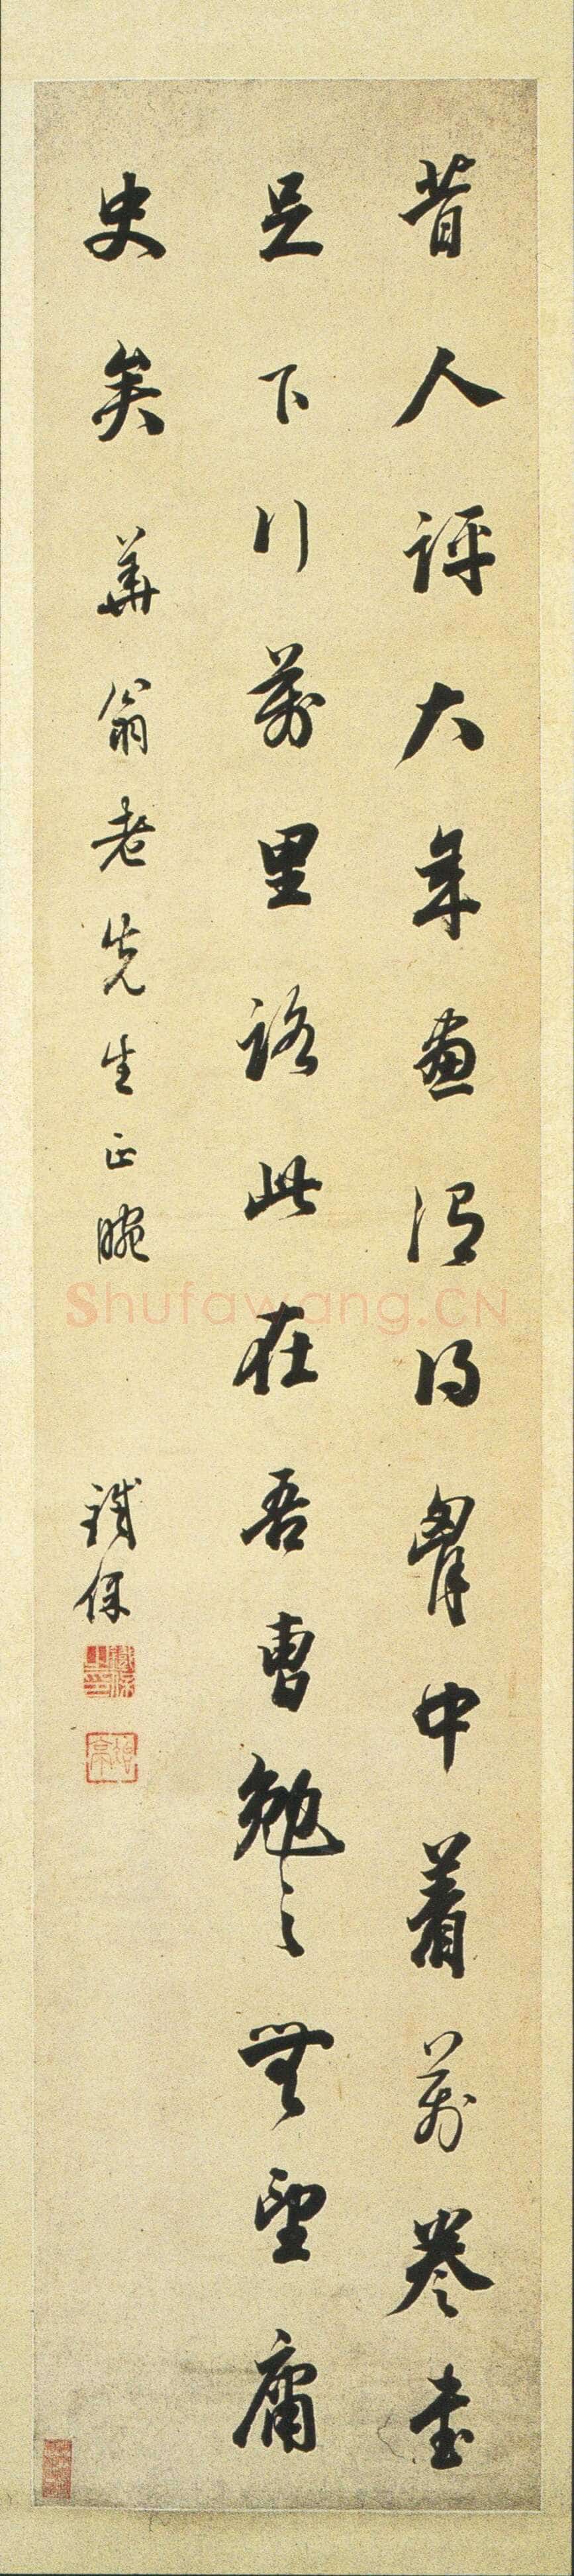 昔人評大年畫謂得胷中着萬卷書
足下行萬里路此在吾曹勉之無望庸
史矣 華翁老先生正腕
鐵保
Shufawang.CN